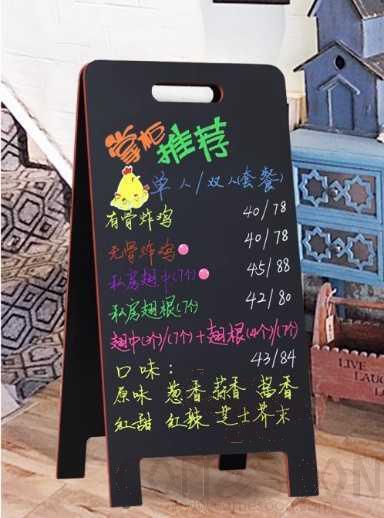 掌柜推荐
单人/双人(套餐)
有骨炸鸡 40/78
无骨炸鸡 40/78
私房翅中(7个) 45/88
私房翅根(7个) 42/80
翅中(3个)/(7个)+翅根(4个)/(7个)
43/84
口味:
原味 葱香 蒜香 酱香
红甜 红辣 芝士芥末
LIVE
LAUGH